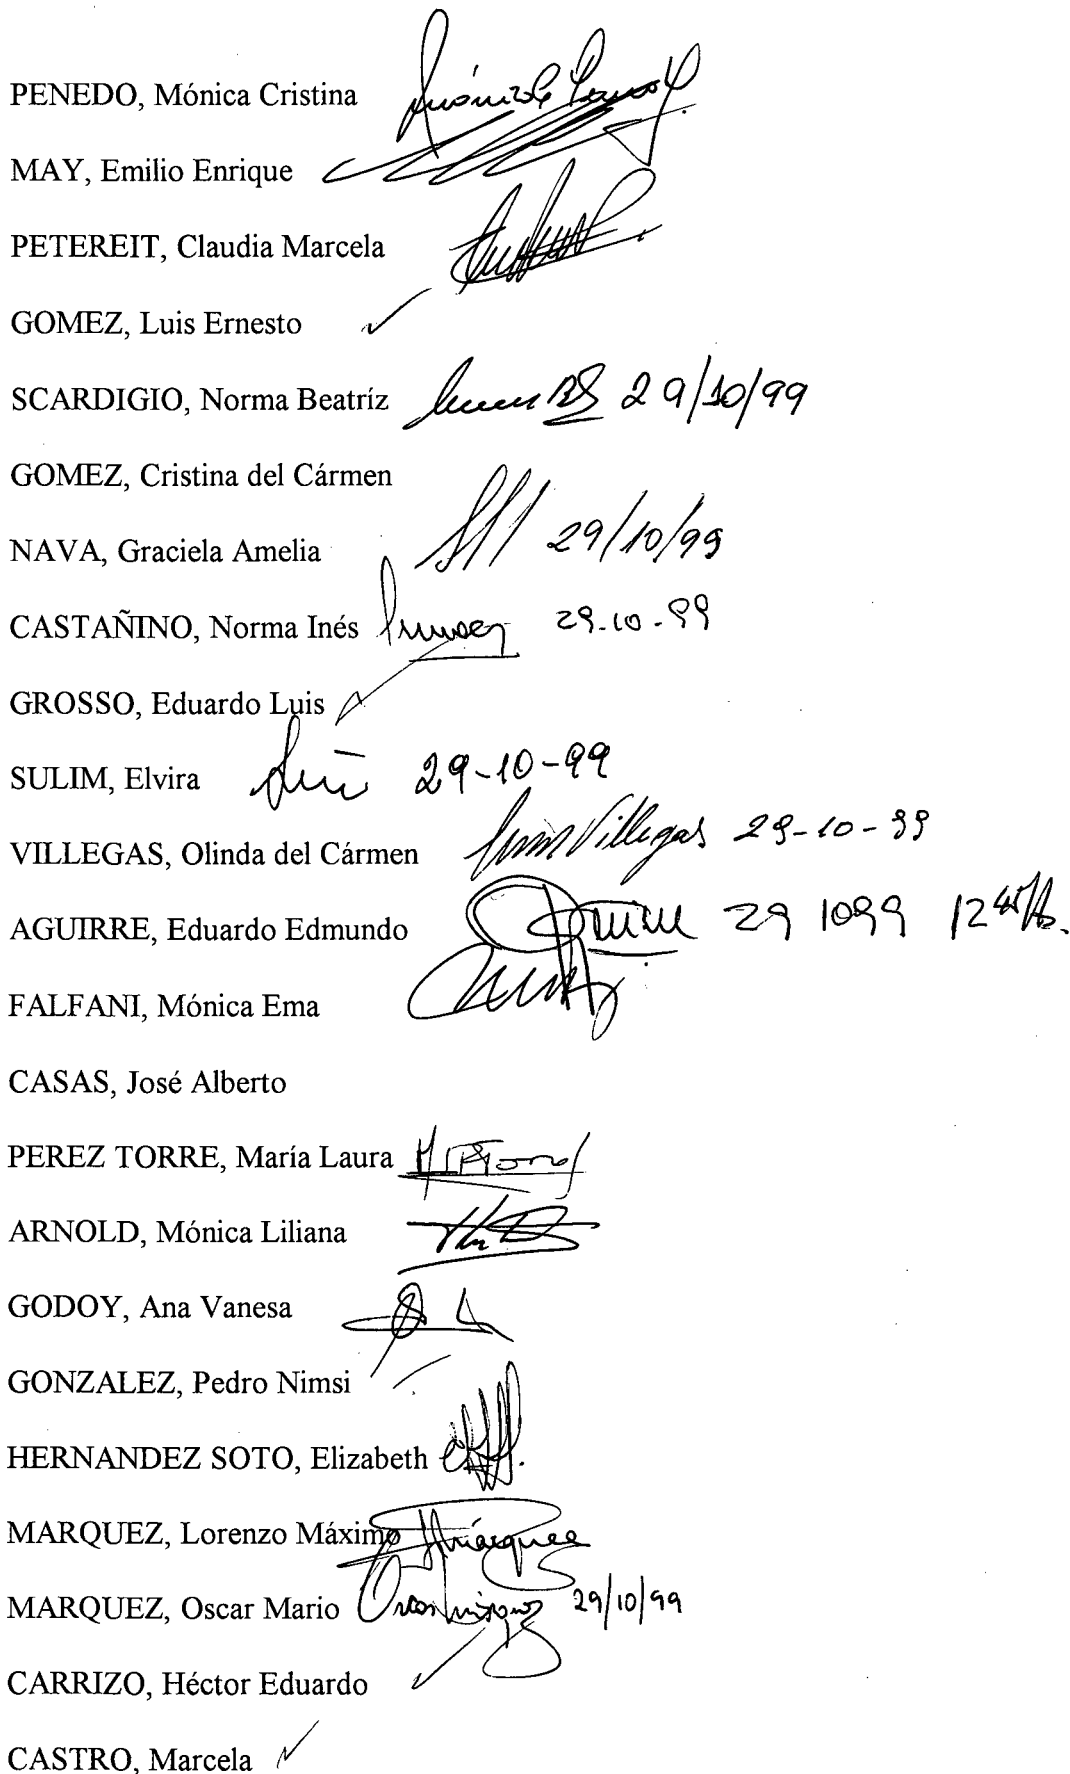 PENEDO, Mónica Cristina
MAY, Emilio Enrique
PETEREIT, Claudia Marcela
GOMEZ, Luis Ernesto
SCARDIGIO, Norma Beatríz 29/10/99
GOMEZ, Cristina del Cármen
NAVA, Graciela Amelia 29/10/99
CASTAÑINO, Norma Inés 29-10-99
GROSSO, Eduardo Luis
SULIM, Elvira 29-10-99
VILLEGAS, Olinda del Cármen Villegas 29-10-99
AGUIRRE, Eduardo Edmundo 29 1099
FALFANI, Mónica Ema
CASAS, José Alberto
PEREZ TORRE, María Laura
ARNOLD, Mónica Liliana
GODOY, Ana Vanesa
GONZALEZ, Pedro Nimsi
HERNANDEZ SOTO, Elizabeth
MARQUEZ, Lorenzo Máximo
MARQUEZ, Oscar Mario 29/10/99
CARRIZO, Héctor Eduardo
CASTRO, Marcela